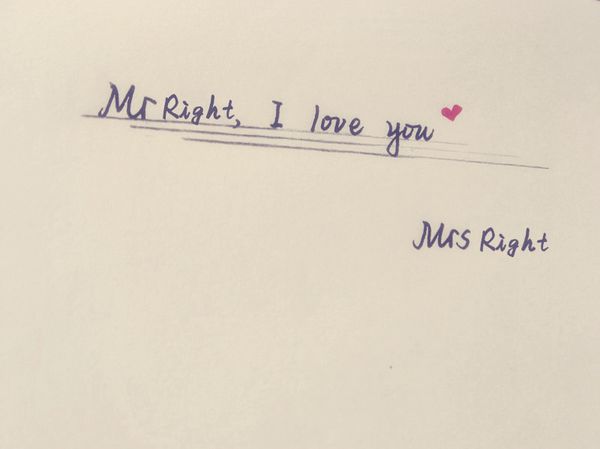 Mr Right, I love you
Mrs Right